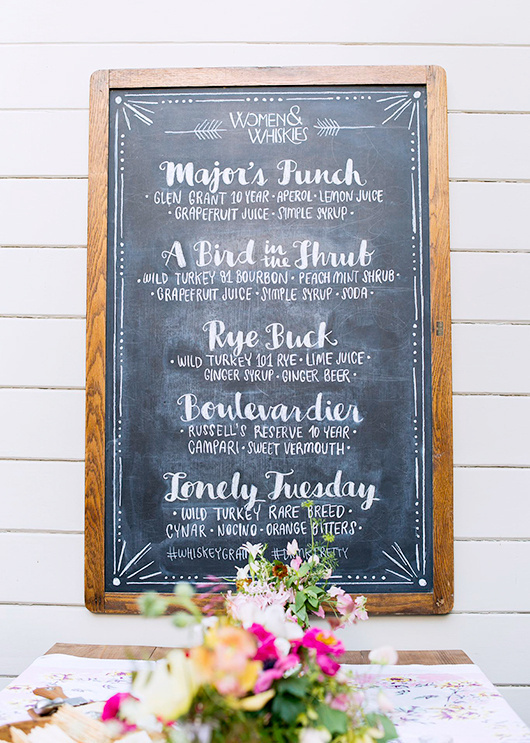 WOMEN &
WHISKIES
Major's Punch
· GLEN GRANT 10 YEAR · APEROL · LEMON JUICE
GRAPEFRUIT JUICE · SIMPLE SYRUP ·
A Bird in the Shrub
· WILD TURKEY 81 BOURBON · PEACH MINT SHRUB ·
GRAPEFRUIT JUICE · SIMPLE SYRUP · SODA ·
Rye Buck
· WILD TURKEY 101 RYE · LIME JUICE ·
GINGER SYRUP · GINGER BEER ·
Boulevardier
· RUSSELL'S RESERVE 10 YEAR ·
CAMPARI · SWEET VERMOUTH ·
Lonely Tuesday
· WILD TURKEY RARE BREED ·
CYNAR · NOCINO · ORANGE BITTERS ·